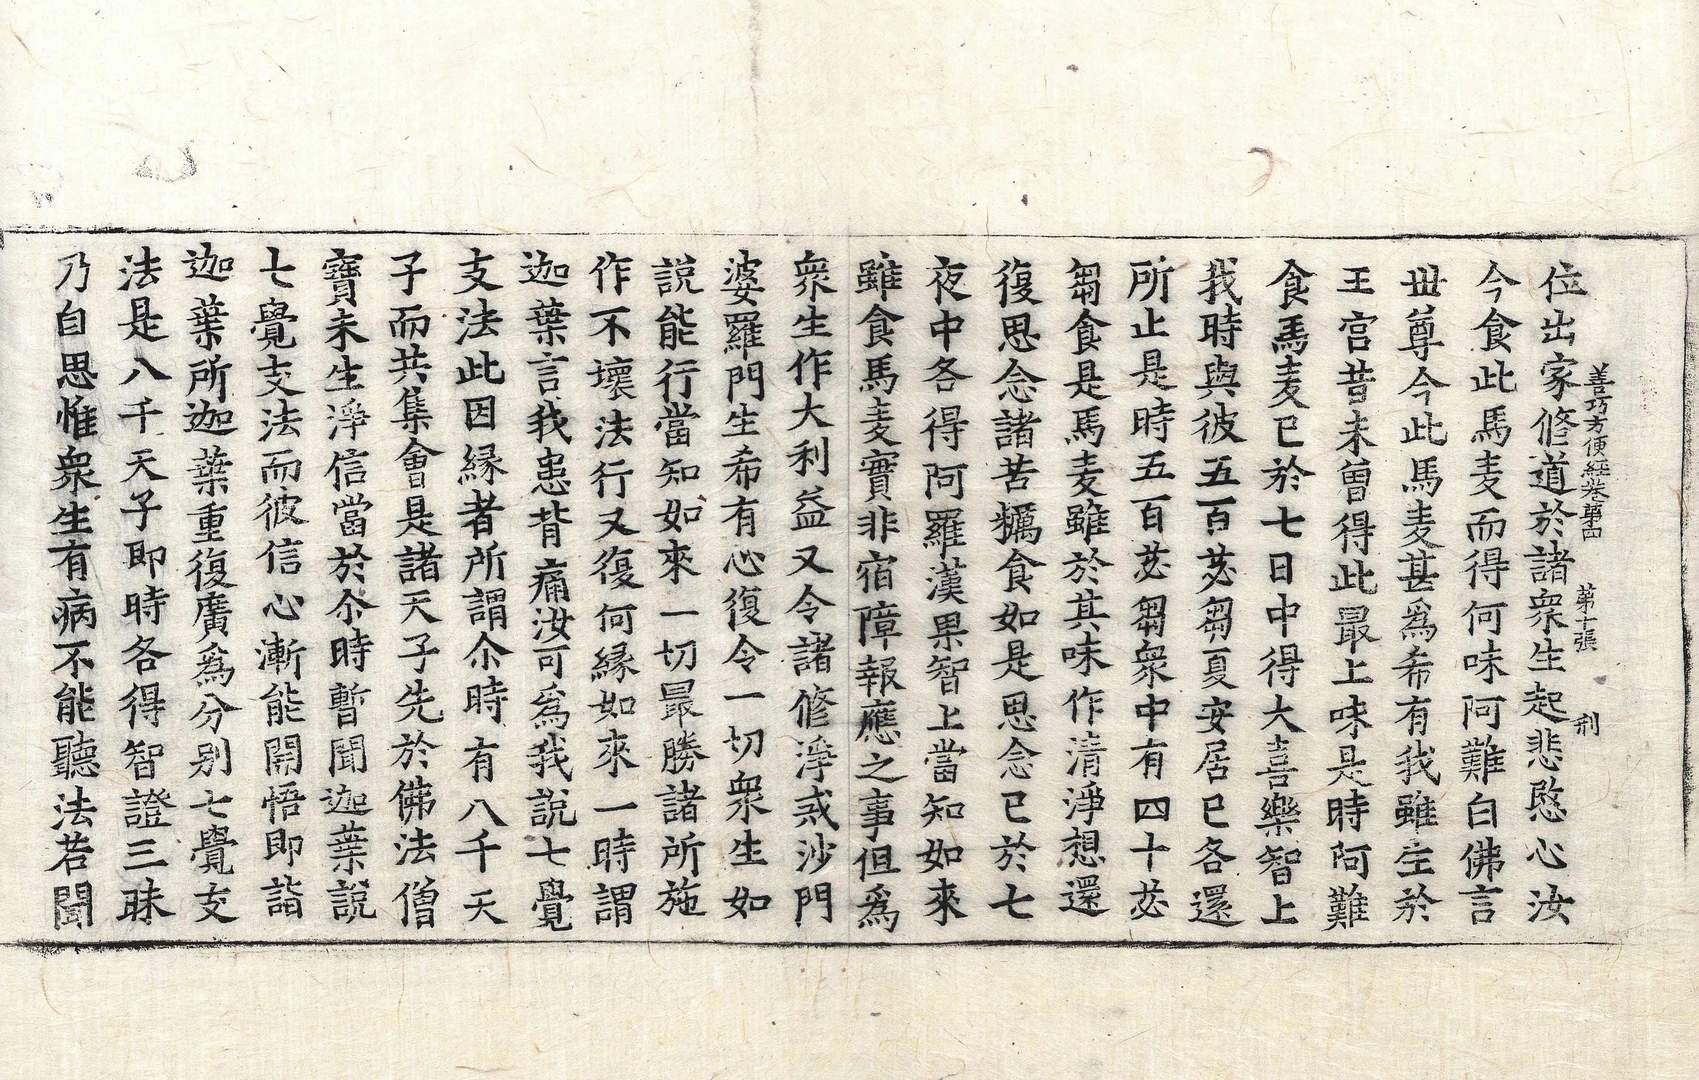 善巧方便經卷第四 第十張 刑
位出家修道於諸衆生起悲愍心汝
今食此馬麦而得何味阿難白佛言
世尊今此馬麦甚爲希有我雖生於
王宫昔未曾得此最上味是時阿難
食馬麦已於七日中得大喜樂智上
我時與彼五百苾芻夏安居已各還
所止是時五百苾芻衆中有四十苾
芻食是馬麦雖於其味作清淨想還
復思念諸苦糲食如是思念已於七
夜中各得阿羅漢果智上當知如來
雖食馬麦實非宿障報應之事但爲
衆生作大利益又令諸修淨戒沙門
婆羅門生希有心復令一切衆生如
說能行當知如來一切最勝諸所施
作不壞法行又復何緣如來一時謂
迦葉言我患背痛汝可爲我說七覺
支法此因緣者所謂尒時有八千天
子而共集會是諸天子先於佛法僧
寶未生淨信當於尒時暫聞迦葉說
七覺支法而彼信心漸能開悟即詣
迦葉所迦葉重復廣爲分别七覺支
法是八千天子即時各得智證三昧
乃自思惟衆生有病不能聽法若聞